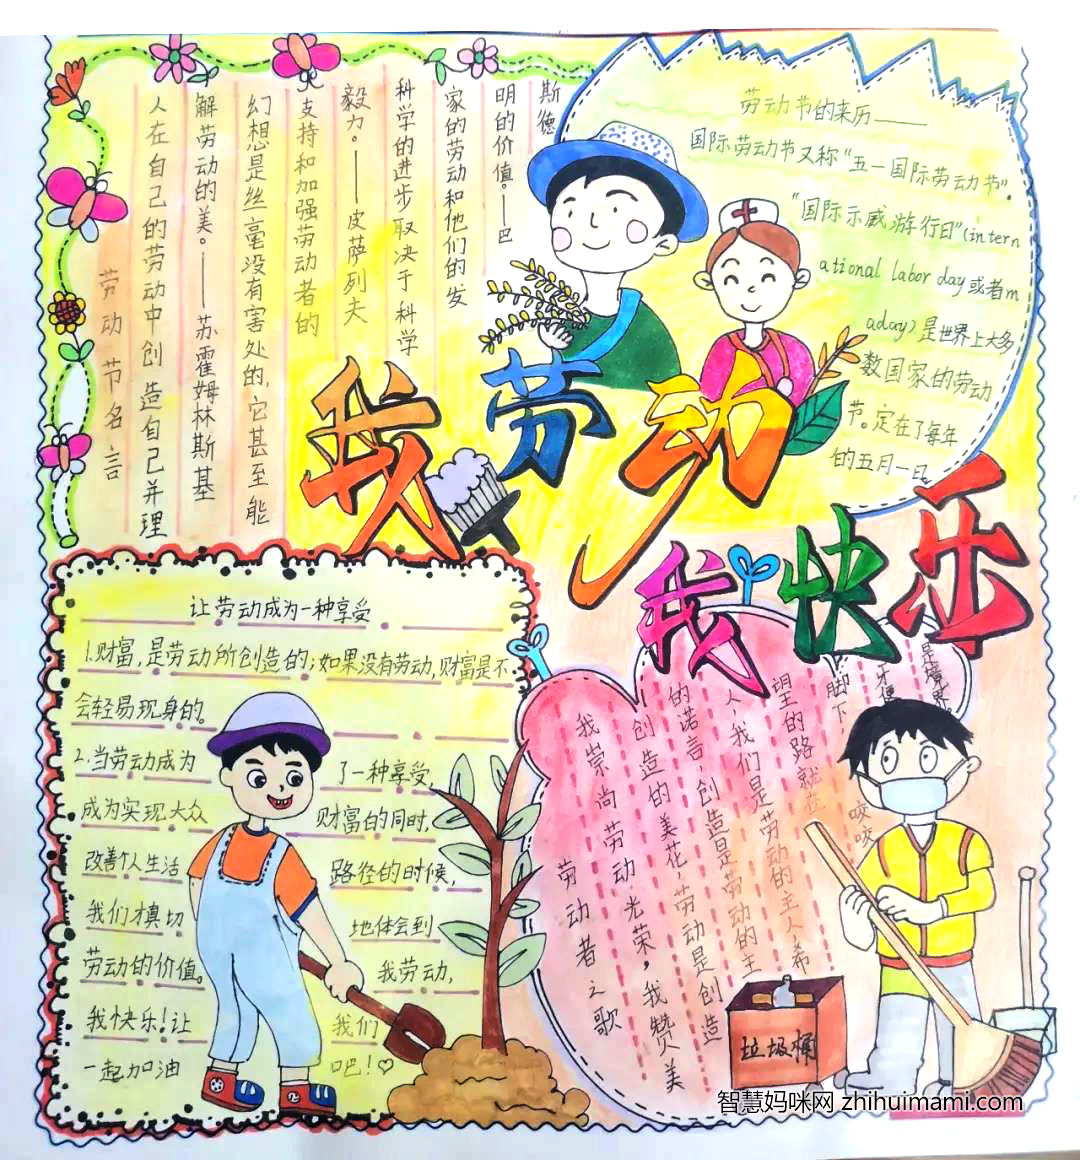 劳动节名言
人在自己的劳动中创造自己并理
解劳动的美。——苏霍姆林斯基
幻想是丝毫没有害处的,它甚至能
支持和加强劳动者的
毅力。——皮萨列夫
科学的进步取决于科学
家的劳动和他们的发
明的价值。——巴
斯德
劳动节的来历——
国际劳动节又称“五一国际劳动节”.
“国际示威游行日”(intern
ational labor day或者m
aday)是世界上大多
数国家的劳动
节。定在了每年
的五月一日。
我劳动
我快乐
让劳动成为一种享受
1.财富,是劳动所创造的;如果没有劳动,财富是不
会轻易现身的。
2.当劳动成为了一种享受,
成为实现大众财富的同时,
改善个人生活路径的时候,
我们才真切地体会到
劳动的价值。我劳动,
我快乐!让我们
一起加油吧!♡
劳动者之歌
我崇尚劳动光荣,我赞美
创造的美花,劳动是创造
的诺言,创造是劳动的主
人,我们是劳动的主人希
望的路就在
脚下,咬咬
牙便
是境界
垃圾桶
智慧妈咪网 zhihuimami.com